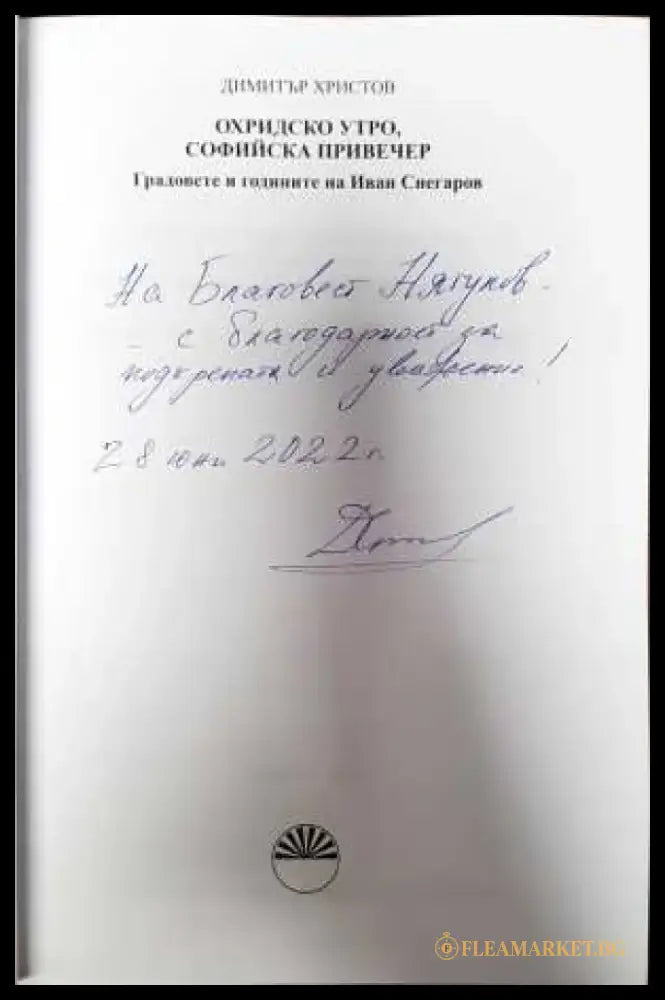 ДИМИТЪР ХРИСТОВ
ОХРИДСКО УТРО,
СОФИЙСКА ПРИВЕЧЕР
Градовете и годините на Иван Снегаров
На Благовест Нягулов -
- с благодарност за
подкрепата и уважение!
28 юни 2022 г.
FLEAMARKET.BG